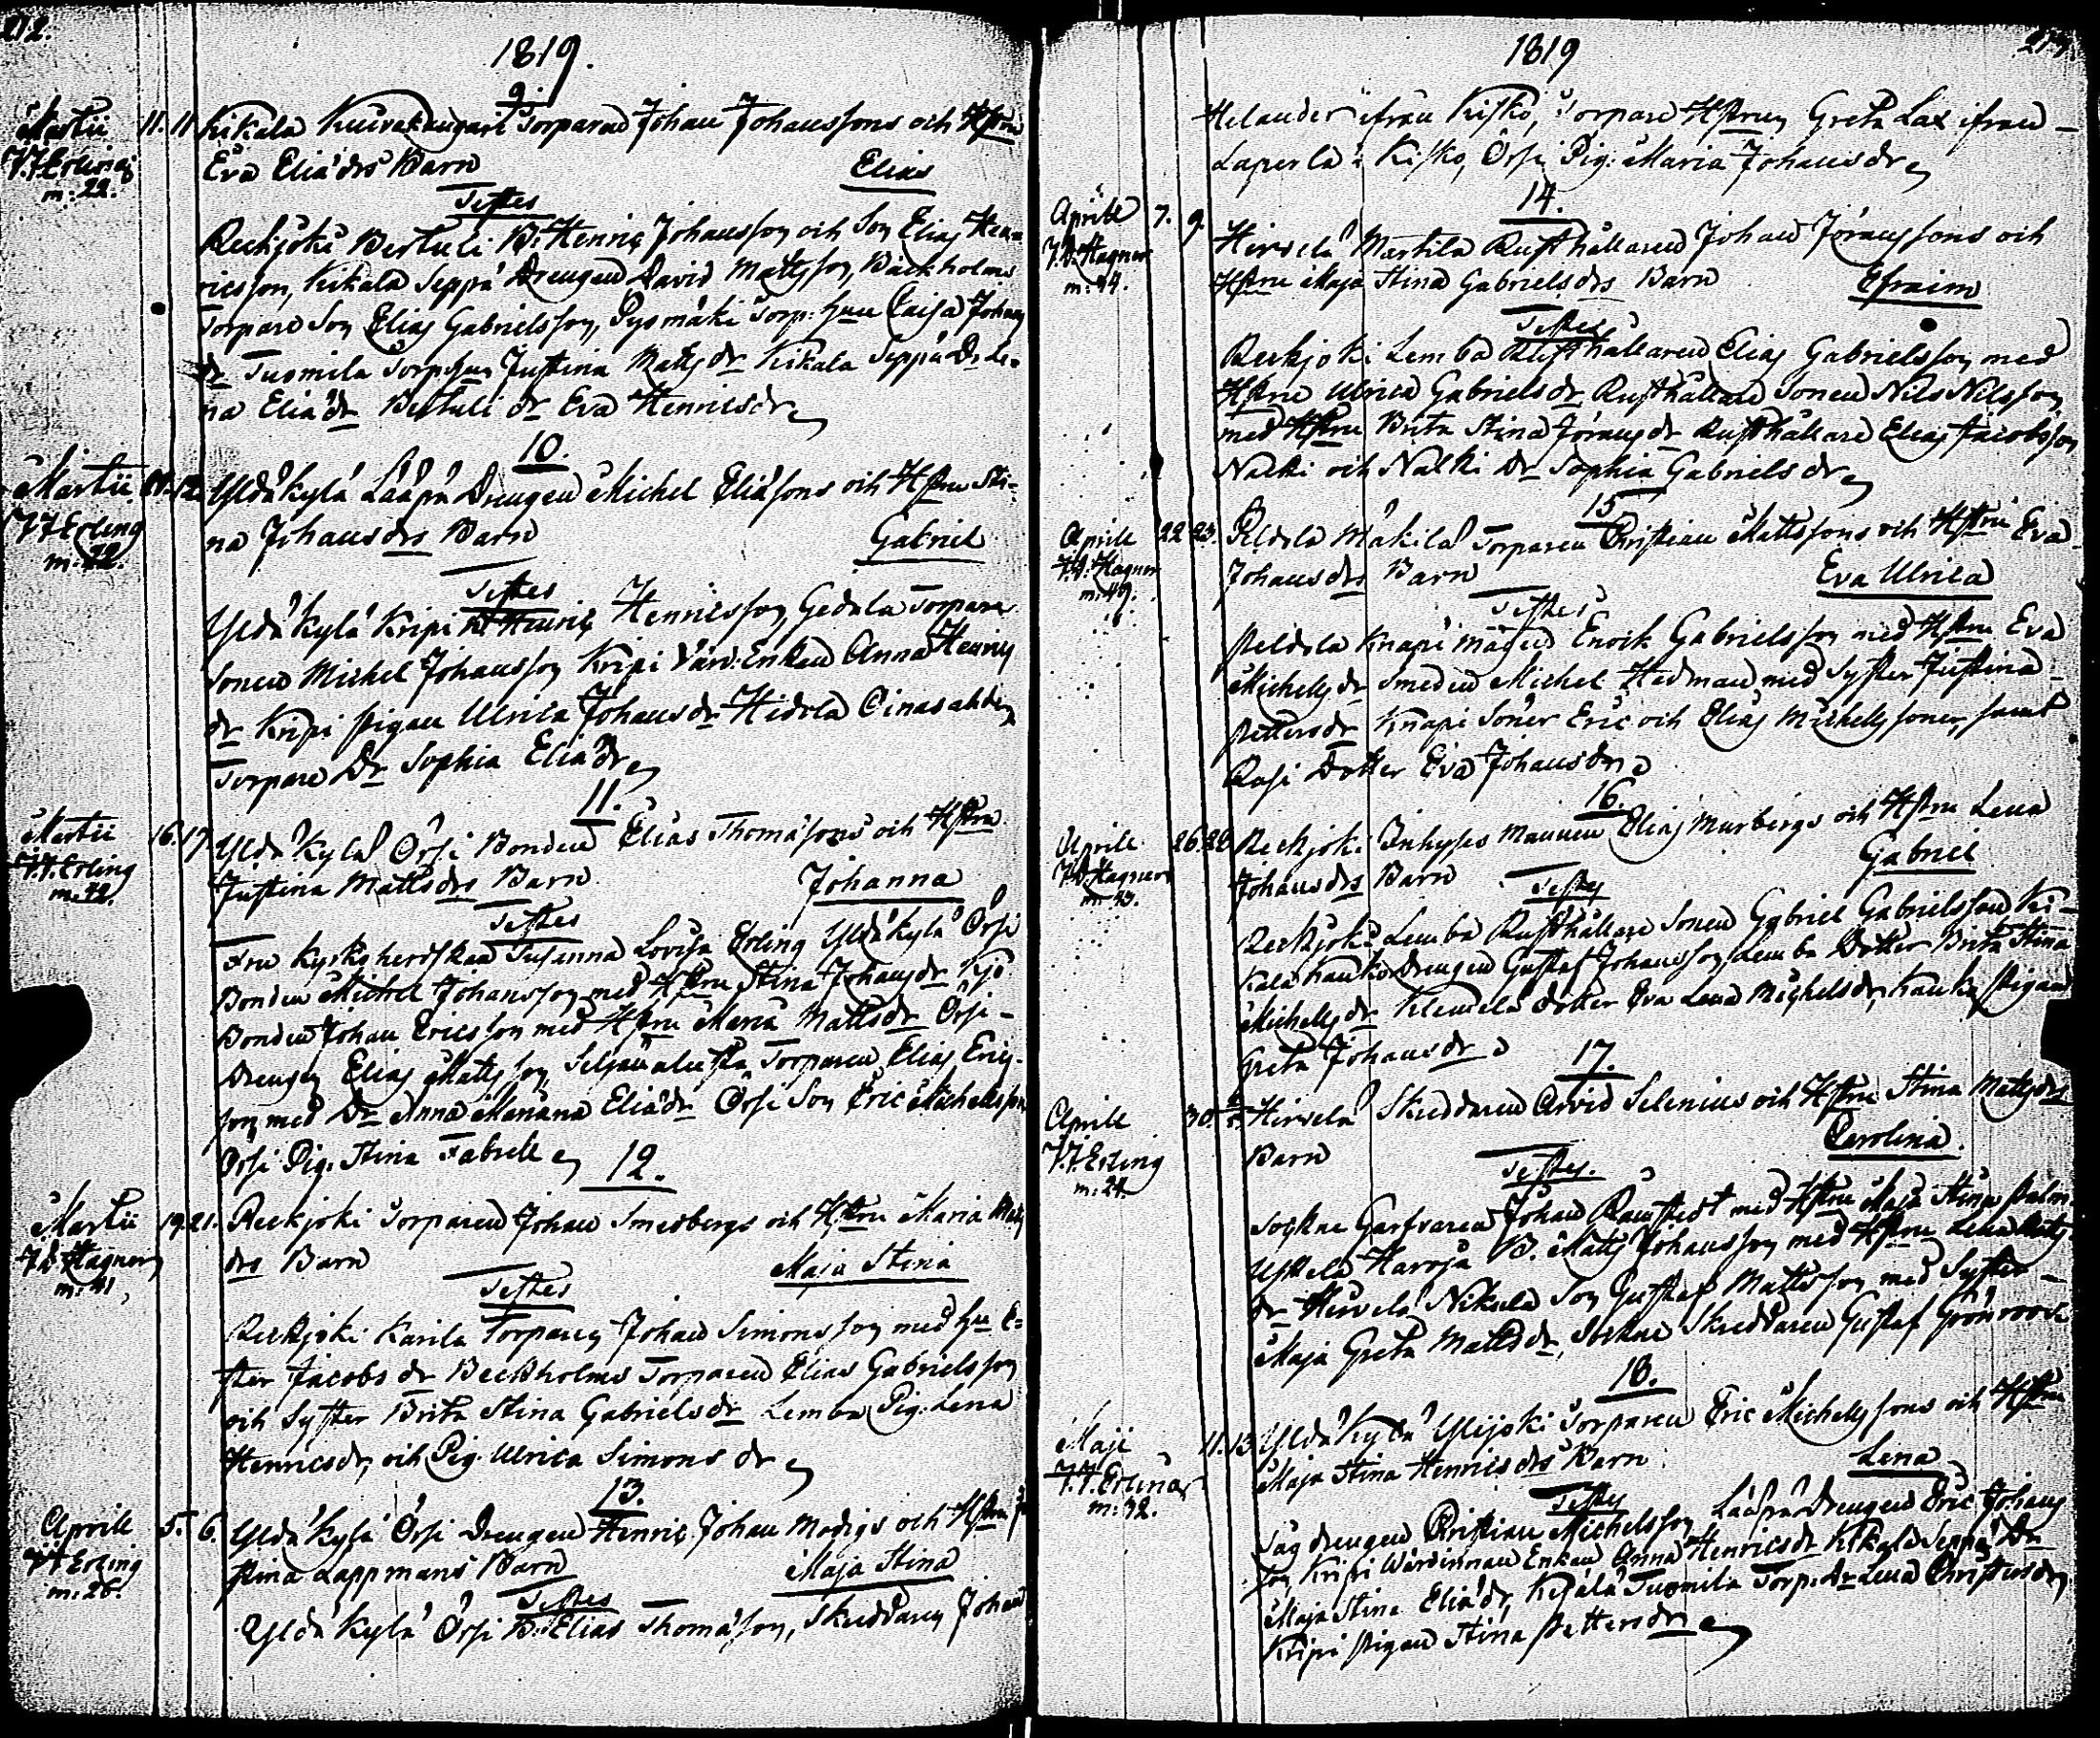 212.
1819.
9.
Martii 11. 11 Kikala Torparen Johan Johanssons och Hstru
J. J. Erling Eva Eliædrs Barn Elias
m: 22.
Testes
Rekijoki Bertuli B. Henric Johansson och Son Elias Hen
ricsson, Kikala Seppä Drengen David Mattsson, Bäckholms
Torpare Son Elias Gabrielsson, Pysmäki Torp: Hru Caisa Johans
dr Tuomila Justina Matts dr Kikala Seppä Dr Le-
na Eliædr Bertuli dr Eva Henricsdr
10.
Martii 12. Yldäkylä Laapa Drengen Michel Eliæsons och Hstru Sti-
J. J. Erling na Johansdrs Barn Gabriel
m: 22.
Testes
Yldäkylä Kripi Henric Henricsson, Torpare
Sonen Michel Johansson Kripi Värd: Enkan Anna Henrics
dr Kripi Pigan Ulrica Johansdr
Torpare Dr Sophia Eliædr
11.
Martii 16. 17 Yldäkylä Örsi Bonden Elias Thomæsons och Hstru
J. J. Erling Justina Mattsdrs Barn Johanna
Testes
Fru Kyrkoherdskan Susanna Lovisa Erling Yldäkylä Örsi
Bonden Michel Johansson med Hstru Stina Johansdr
Bonden Johan Ericsson med Hstru Maria Mattsdr Örsi-
Drengen Elias Mattsson, Torparen Elias Eric-
son med Dr Anna Mariana Eliædr Örsi Son Eric Michelsson
Örsi Pig. Stina
12.
Martii 19. 21. Rekijoki Torparen Johan Smedbergs och Hstru Maria Matts
J. D. Hagner drs Barn Maja Stina
m: 41
Testes
Rekijoki Karila Torparen Johan Simonsson med Hu E-
ster Jacobs dr Beckholms Torparen Elias Gabrielsson
och Syster Brita Stina Gabrielsdr Lemba Pig. Lena
Henricsdr, och Pig. Ulrica Simons dr
13.
Aprill 5. 6. Yldäkylä Örsi Drengen Henric Johan Modigs och Hstru
J J Erling stina Lappmans Barn Maja Stina
m: 26.
Testes
Yldäkylä Örsi B. Elias Thomæson, Skreddaren Johan
1819
Helander ifrån Kisko, Torpare Hstrun Greta Lax ifrån
Laperla i Kisko, Örsi Pig. Maria Johansdr
14.
Aprill 7. 9. Hirvelä Martila Rusthållaren Johan Göranssons och
J. D. Hagner Hstru Maja Stina Gabrielsdrs Barn Efraim
m: 44.
Testes
Rekijoki Lemba Rusthållaren Elias Gabrielsson med
Hstru Ulrica Gabrielsdr, Rusthållare Sonen Nils Nilsson
med Hstru Brita Stina Göransdr Rusthållare Elias Jacobsson
Nälki och Nälki Dr Sophia Gabrielsdr
15
Aprill 22 23. Mäkilä Torparen Christian Mattssons och Hstru Eva
J. D. Hagner Johansdrs Barn Eva Ulrica
m: 49.
Testes
Knapi mågen Enock Gabrielsson med Hstru Eva
Michelsdr Smeden Michel Hedman med Syster Justina
Pettersdr Knapi Söner Eric och Elias Michelssöner, samt
Dotter Eva Johansdr
16.
Aprill 26. Rekijoki Inhyses Mannen Elias Murbergs och Hstru Lena
J. D. Hagner Johansdrs Barn Gabriel
Testes
Rekijoki Lemba Rusthållare Sonen Gabriel Gabrielsson Ki-
kala Kauko Drengen Gustaf Johansson, Lemba Dotter Brita Stina
Michelsdr Klemelä Dotter Eva Lena Michelsdr, Kauko Pigan
Greta Johansdr
17.
Aprill 30. Hirvelä Skreddaren Arvid Selenius och Hstru Stina Mattsdrs
J. J. Erling Barn Carolina.
m: 24
Testes.
Sockne Garfvaren Johan med Hstru Maja Stina Palm
Uskela B. Matts Johansson med Hstru Lena Matts
dr Hirvelä Nikula Son Gustaf Mattsson med Syster
Maja Greta Mattsdr, Sockne Skreddaren Gustaf Grönroos
18.
Maji 11. 13 Yldäkylä Ylijoki Torparen Eric Michelssons och Hstru
J. J. Erling Maja Stina Henricsdrs Barn Lena
m: 32.
Testes
Säg drengen Christian Michelsson Laapa Drengen Eric Johans
son, Kripi Wärdinnan Enkan Anna Henricsdr Kikala Seppä Dr
Maja Stina Eliædr, Tuomila Torp. Dr Lena Christersdr
Kripi Pigan Stina Pettersdr